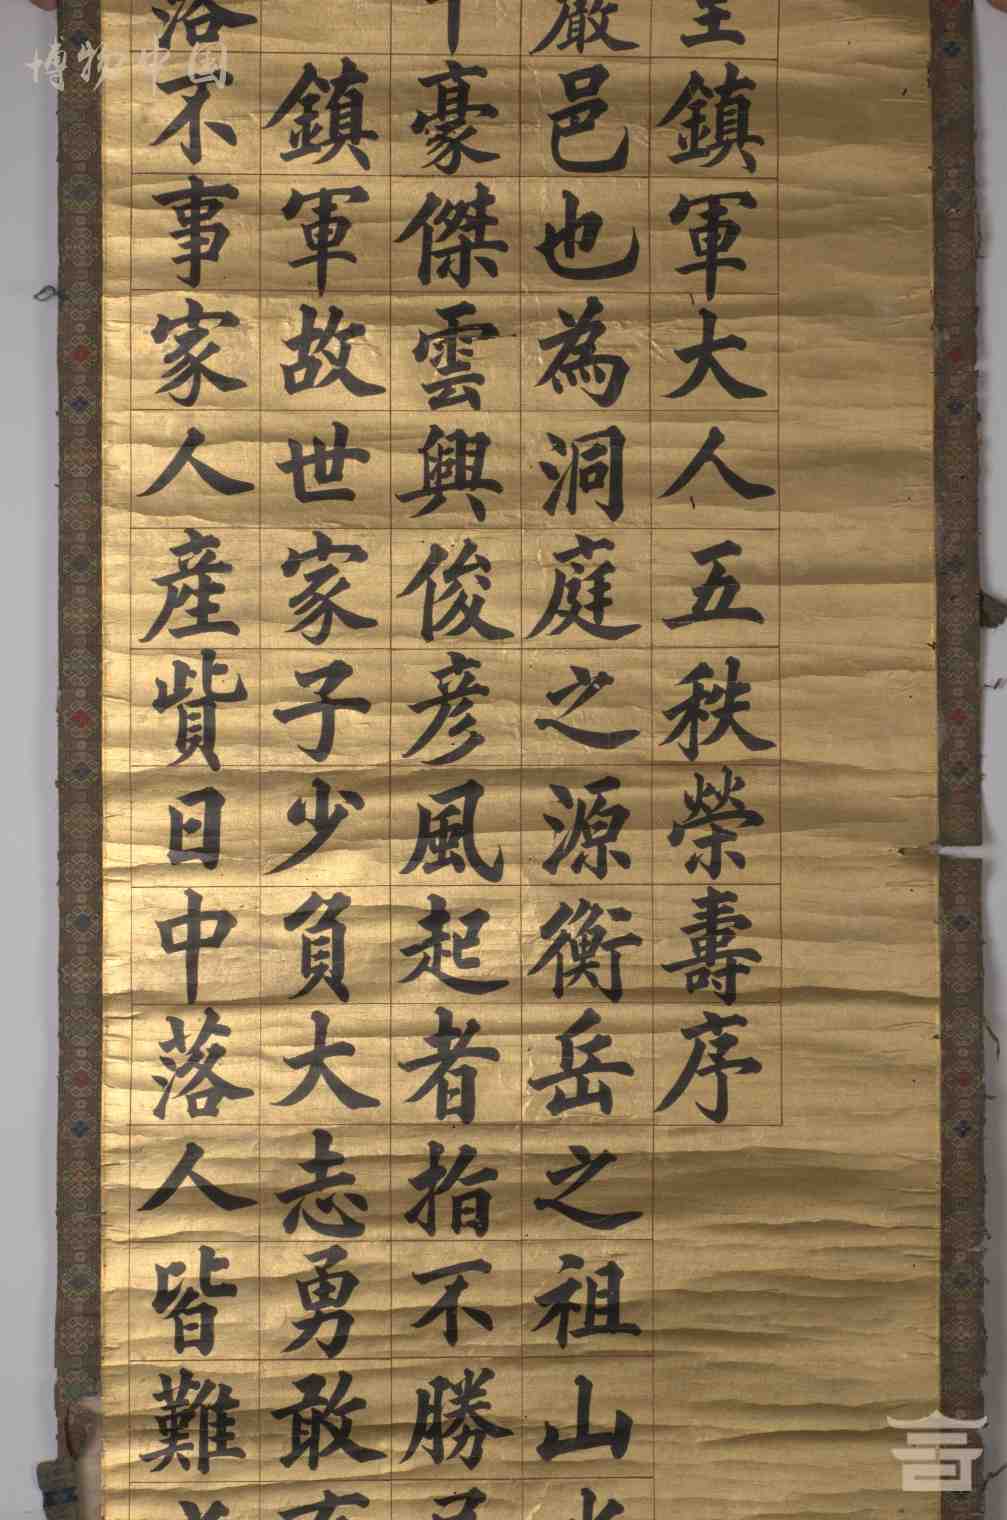 鎮軍大人五秩榮壽序
嚴邑也為洞庭之源衡岳之祖山
豪傑雲興俊彥風起者指不勝
鎮軍故世家子少負大志勇敢
落不事家人産貲日中落人皆難
博物中国